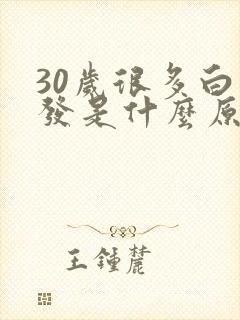 30歲很多白
發是什麼原
王鍾麓